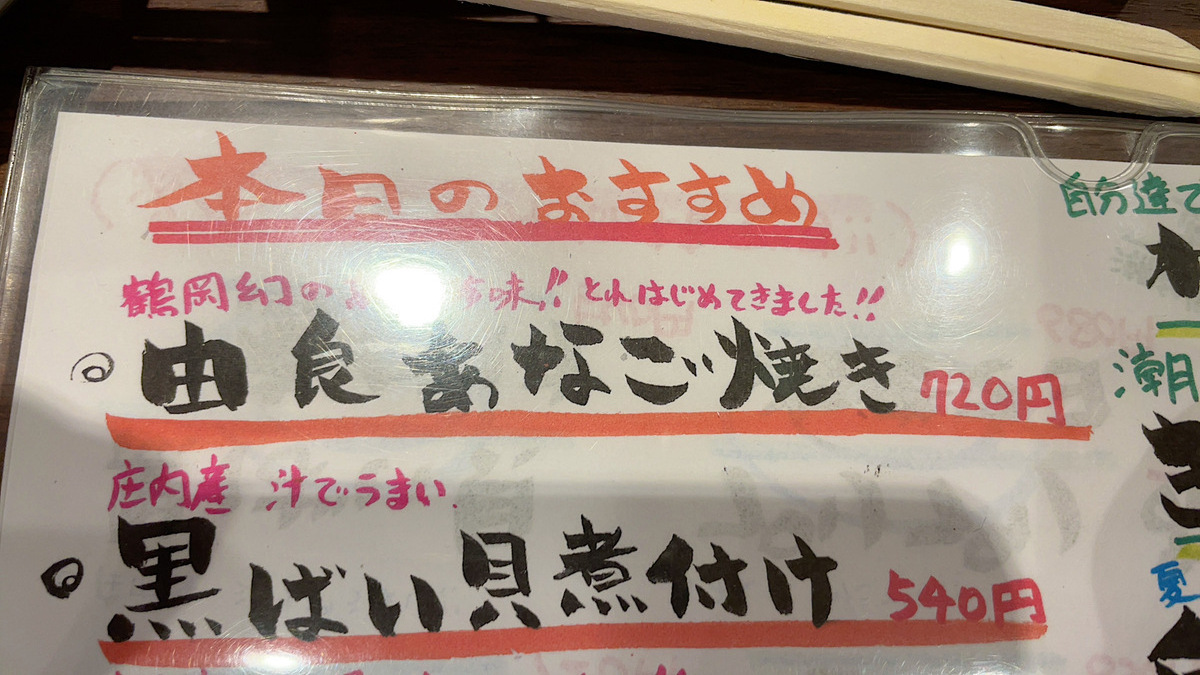 本日のおすすめ
鶴岡幻の 味!! とれはじめてきました!!
◎由良あなご焼き 720円
庄内産 汁でうまい.
◎黒ばい貝煮付け 540円
自分達で
潮
夏